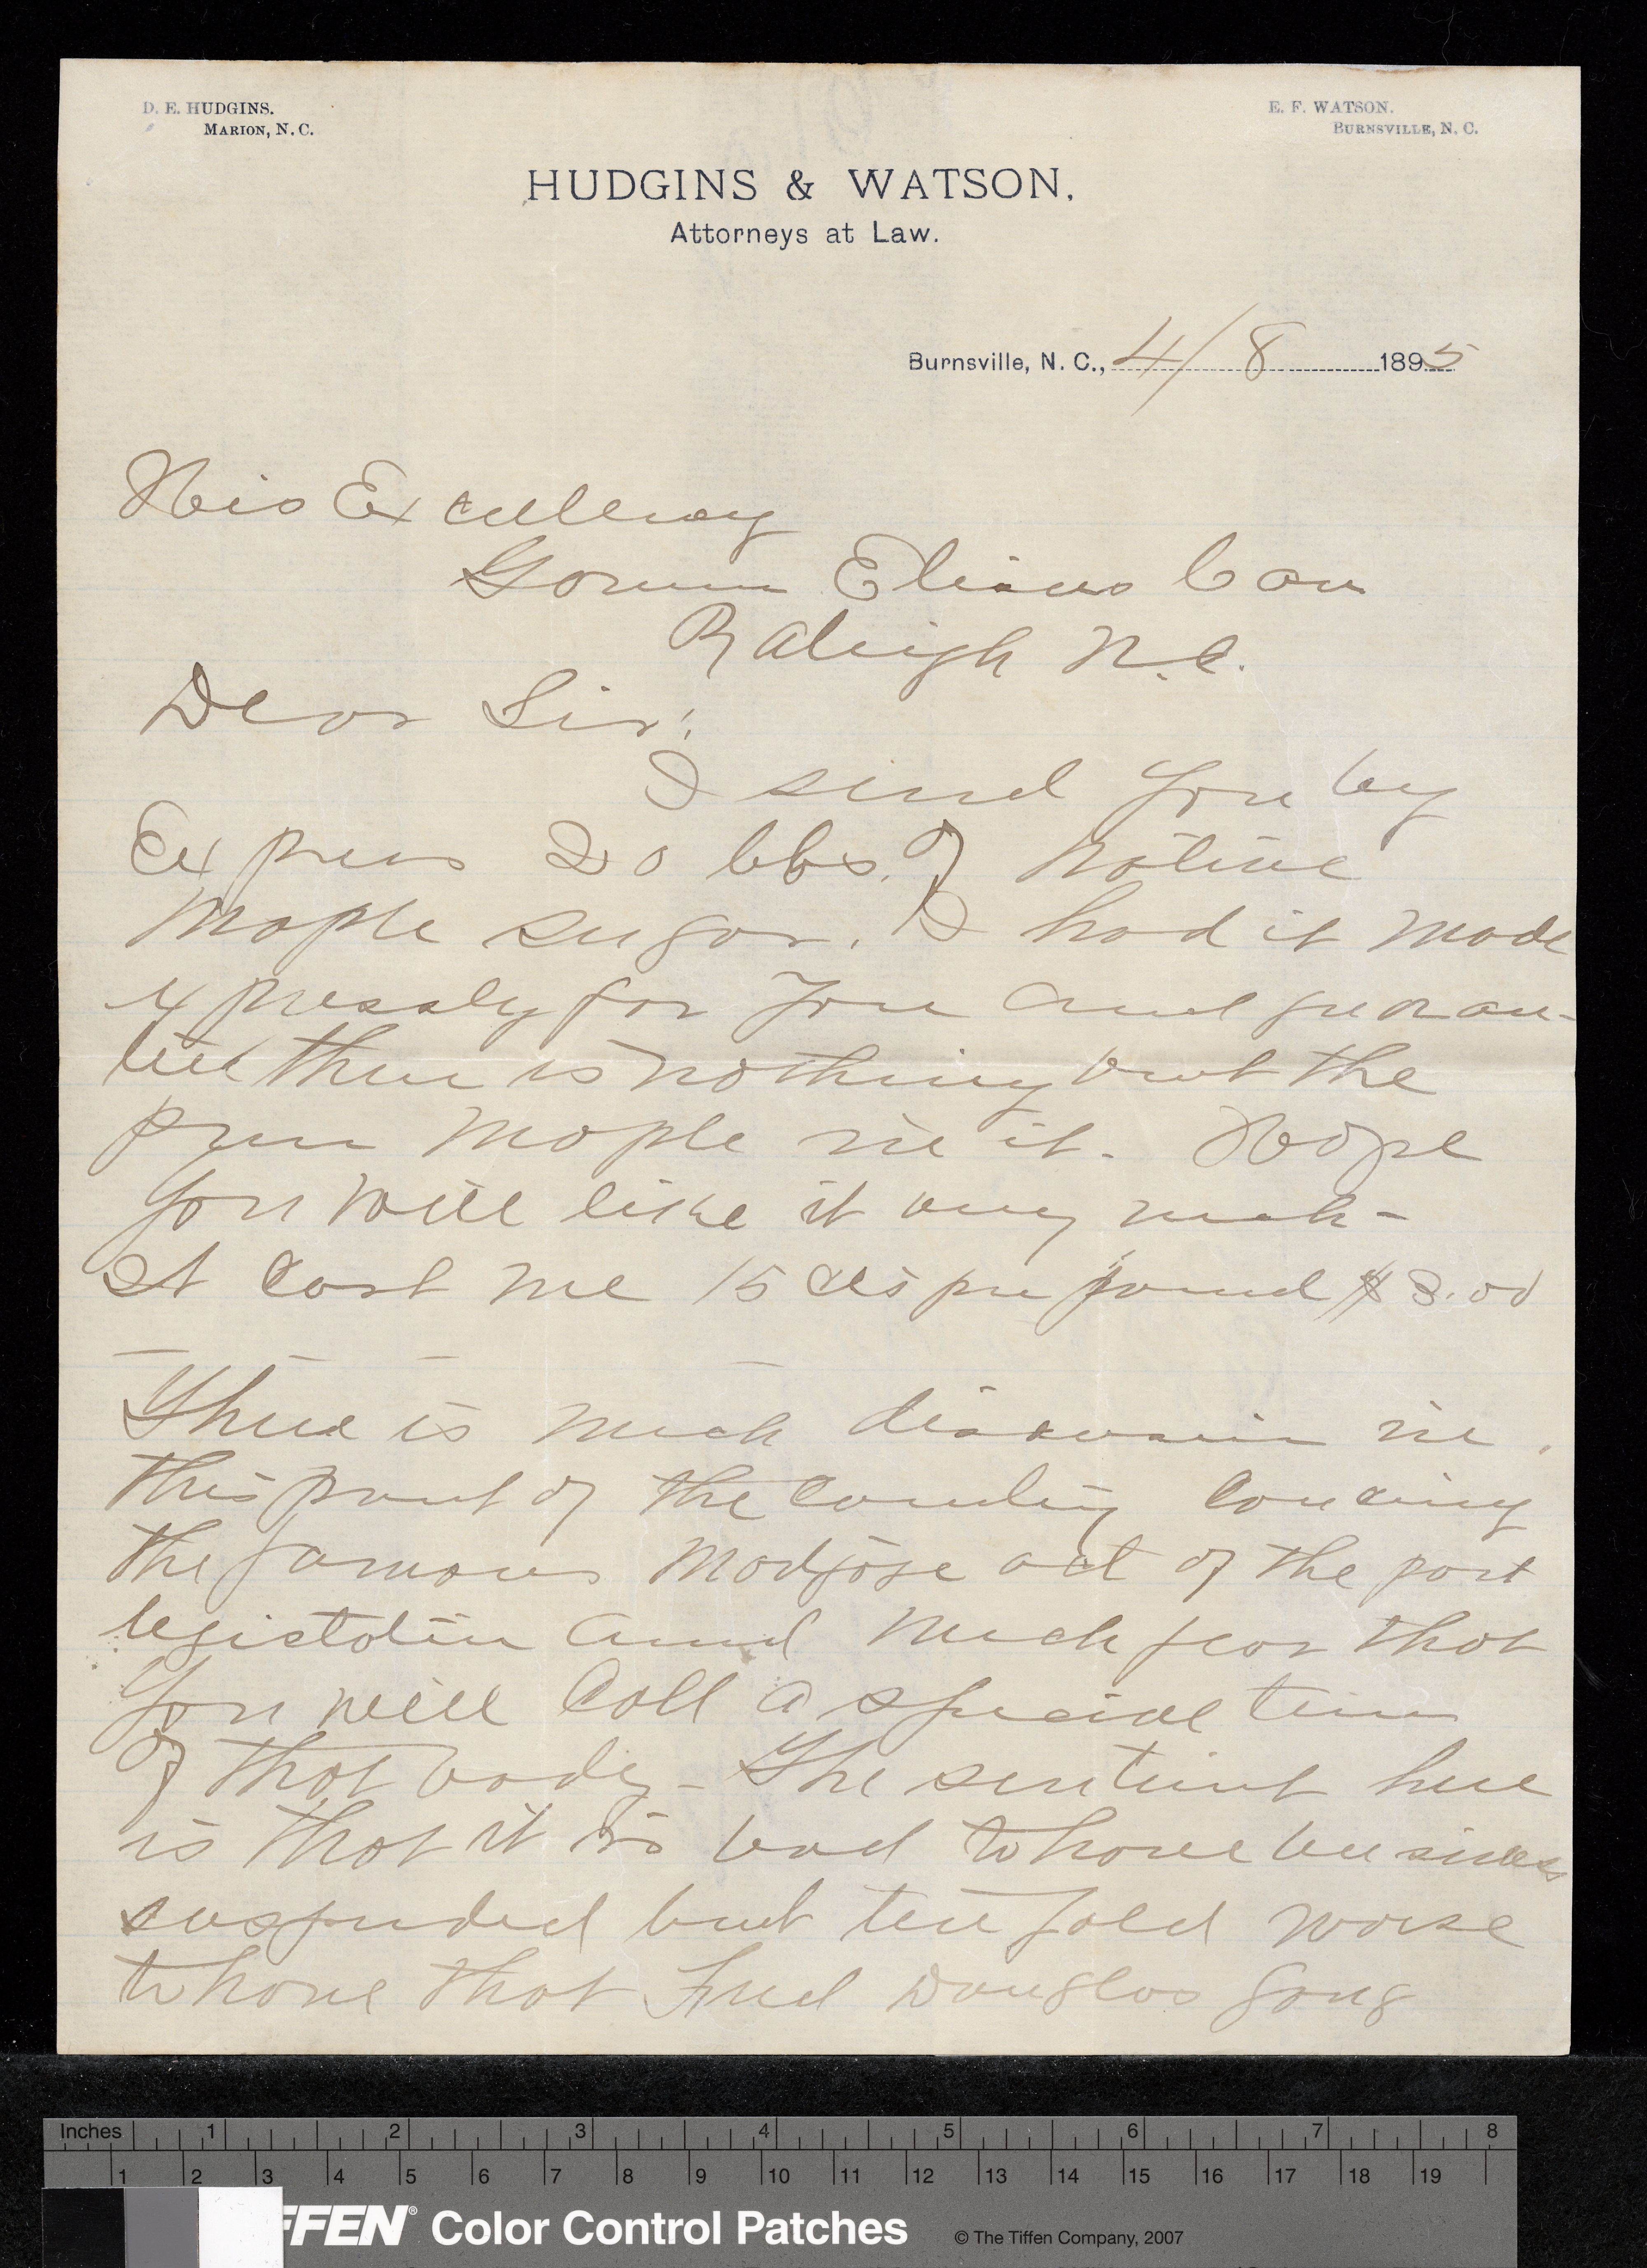 D. E. HUDGINS.
MARION, N. C.
E. F. WATSON.
BURNSVILLE, N. C.
HUDGINS & WATSON,
Attorneys at Law.
Burnsville, N. C., 4/8 1895
His Excellency
Governor Elias Carr
Raleigh N.C.
Dear Sir:
I send you by
Express 20 lbs. of native
maple sugar. I had it made
expressly for you and guaran-
tee there is nothing but the
pure maple in it. Hope
you will like it very much -
It cost me 15 cts per pound $3.00
There is much discussion in
this part of the country
the famous act of the past
legislature and much fear that
you will call a special term
of that body - The sentiment here
is that it is bad to have business
suspended but ten fold worse
to have that Fred Douglas gang
Inches 1 2 3 4 5 6 7 8
1 2 3 4 5 6 7 8 9 10 11 12 13 14 15 16 17 18 19
FFEN® Color Control Patches © The Tiffen Company, 2007